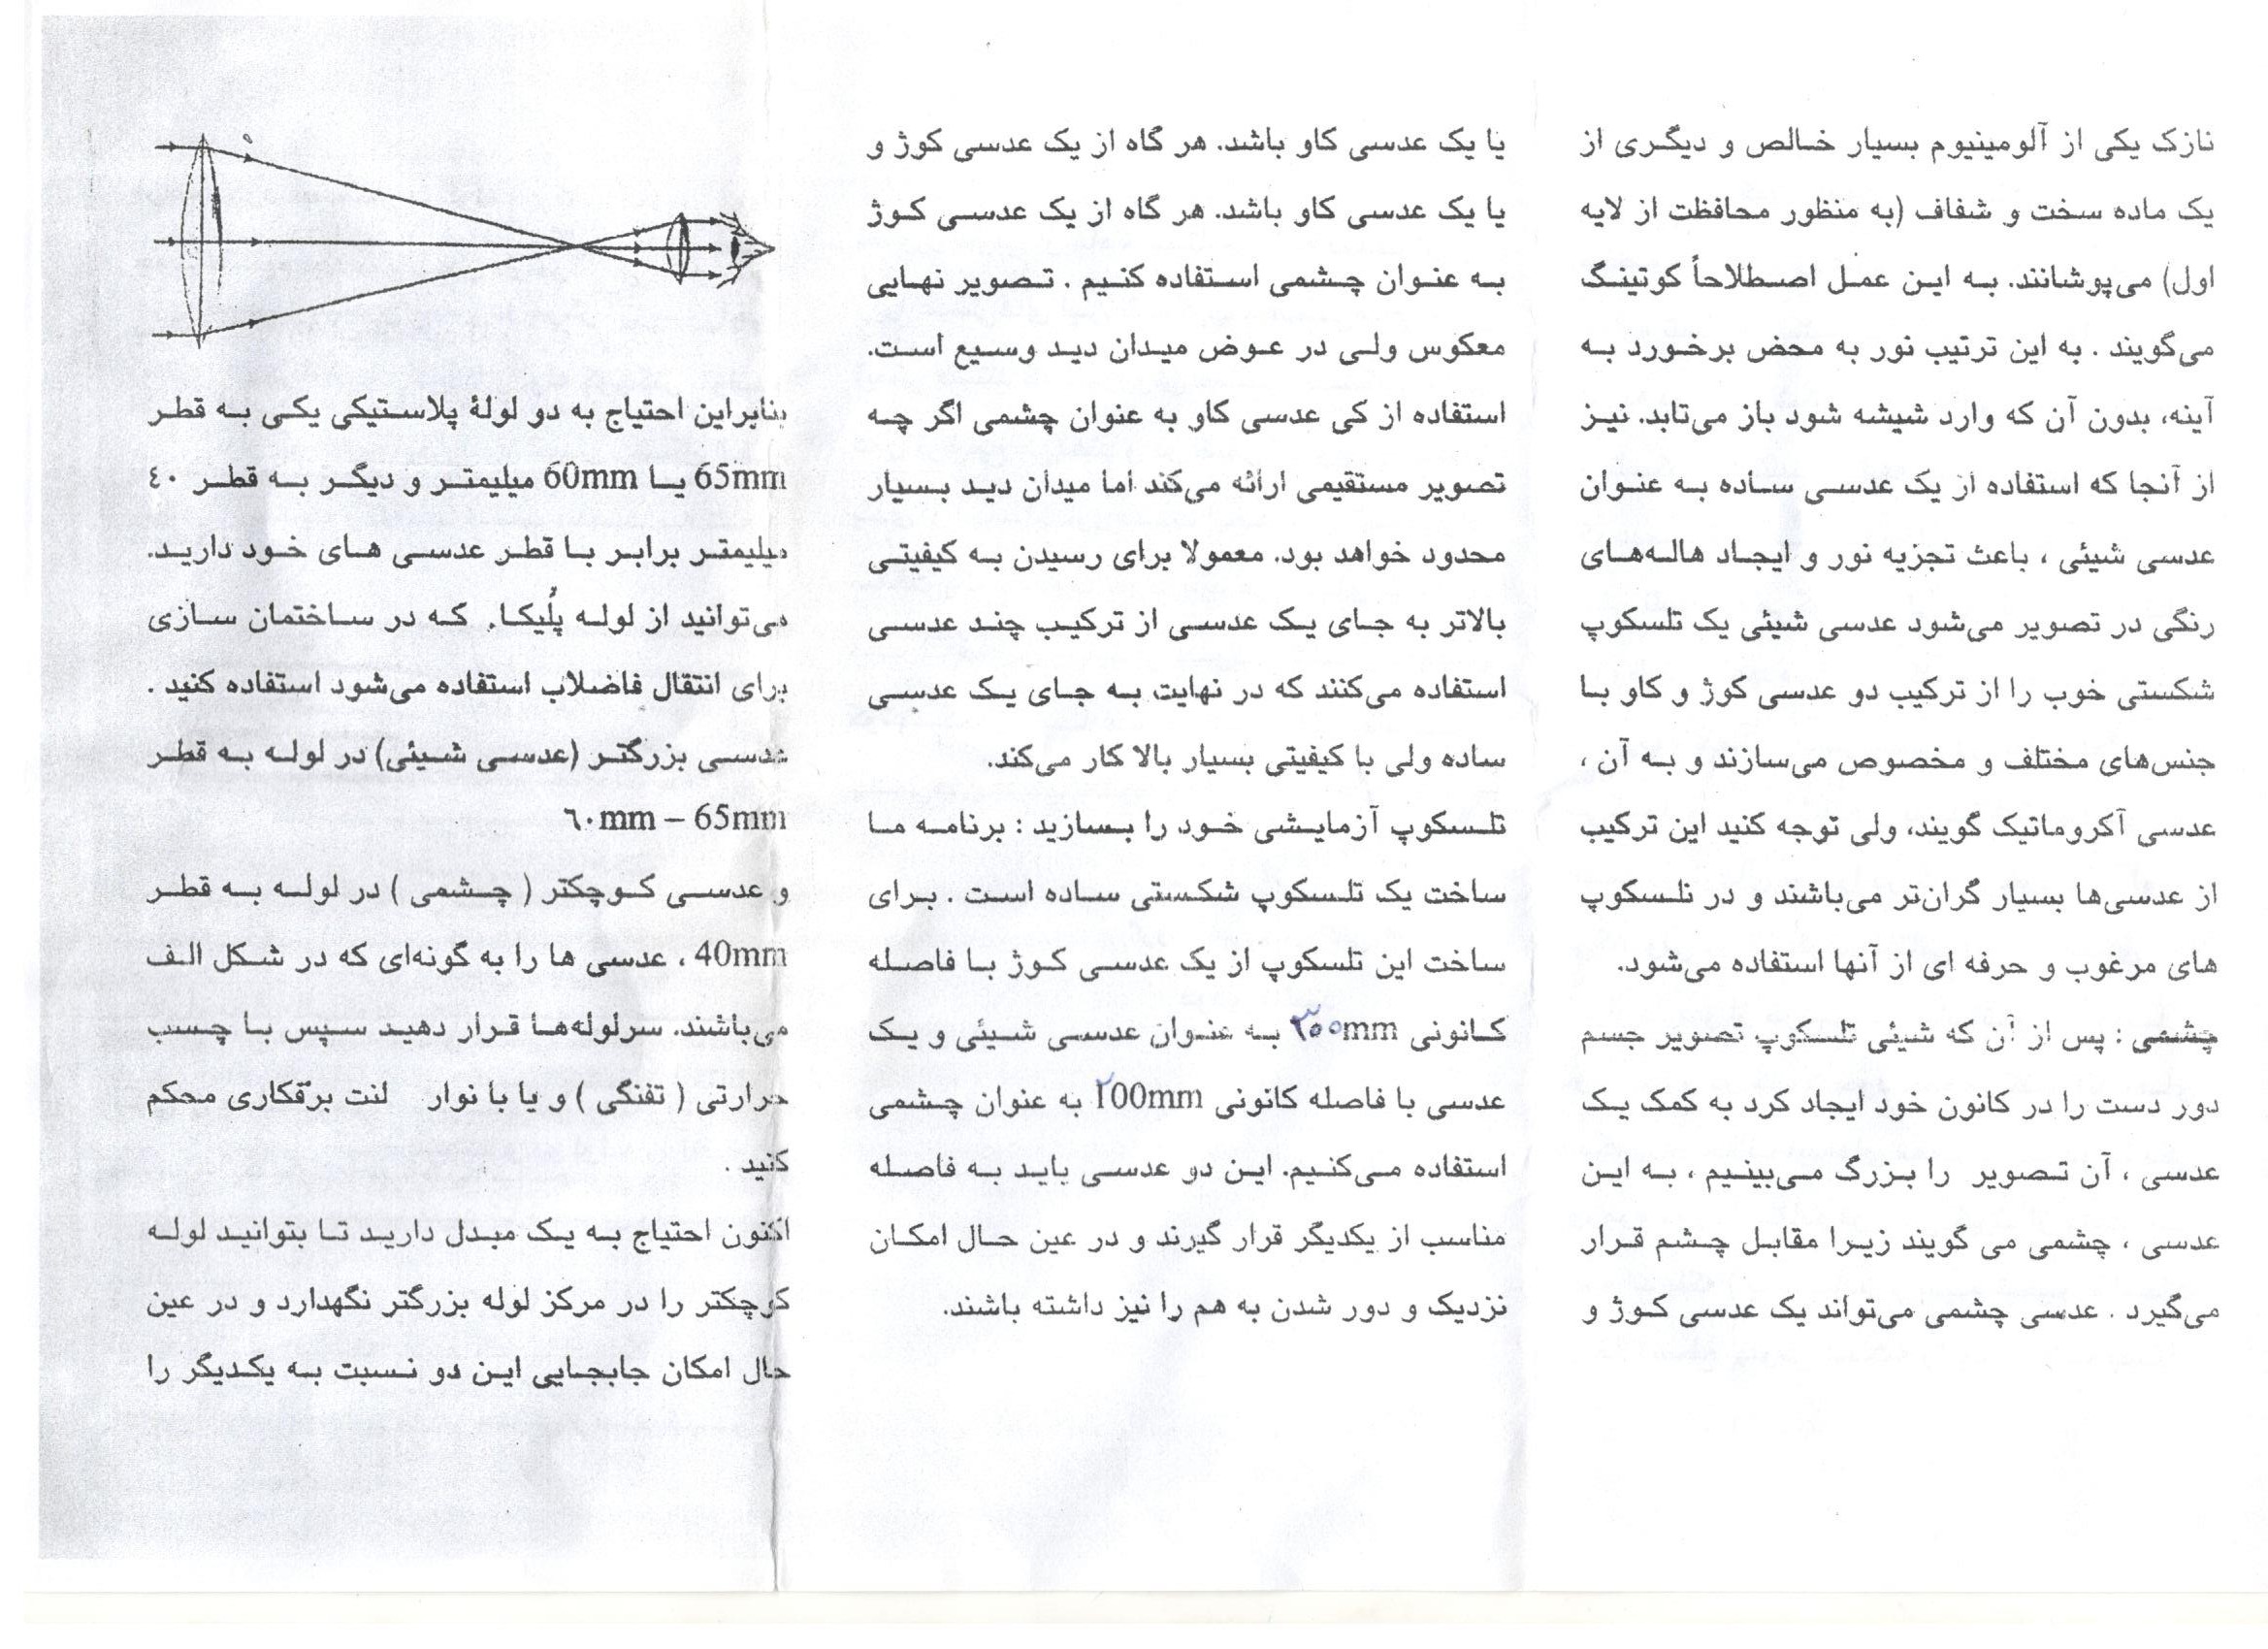 نازک یکی از آلومینیوم بسیار خالص و دیگری از
یک ماده سخت و شفاف (به منظور محافظت از لایه
اول) می‌پوشانند. به این عمل اصطلاحاً کوتینگ
می‌گویند . به این ترتیب نور به محض برخورد به
آینه، بدون آن که وارد شیشه شود باز می‌تابد. نیز
از آنجا که استفاده از یک عدسی ساده به عنوان
عدسی شیئی ، باعث تجزیه نور و ایجاد هاله‌های
رنگی در تصویر می‌شود عدسی شیئی یک تلسکوپ
شکستی خوب را از ترکیب دو عدسی کوژ و کاو با
جنس‌های مختلف و مخصوص می‌سازند و به آن ،
عدسی آکروماتیک گویند، ولی توجه کنید این ترکیب
از عدسی‌ها بسیار گران‌تر می‌باشند و در تلسکوپ
های مرغوب و حرفه ای از آنها استفاده می‌شود.
چشمی : پس از آن که شیئی تلسکوپ تصویر جسم
دور دست را در کانون خود ایجاد کرد به کمک یک
عدسی ، آن تصویر را بزرگ می‌بینیم ، به این
عدسی ، چشمی می گویند زیرا مقابل چشم قرار
می‌گیرد . عدسی چشمی می‌تواند یک عدسی کوژ و
یا یک عدسی کاو باشد. هر گاه از یک عدسی کوژ و
یا یک عدسی کاو باشد. هر گاه از یک عدسی کوژ
به عنوان چشمی استفاده کنیم . تصویر نهایی
معکوس ولی در عوض میدان دید وسیع است.
استفاده از کی عدسی کاو به عنوان چشمی اگر چه
تصویر مستقیمی ارائه می‌کند اما میدان دید بسیار
محدود خواهد بود. معمولا برای رسیدن به کیفیتی
بالاتر به جای یک عدسی از ترکیب چند عدسی
استفاده می‌کنند که در نهایت به جای یک عدسی
ساده ولی با کیفیتی بسیار بالا کار می‌کند.
تلسکوپ آزمایشی خود را بسازید : برنامه ما
ساخت یک تلسکوپ شکستی ساده است . برای
ساخت این تلسکوپ از یک عدسی کوژ با فاصله
کانونی mm به عنوان عدسی شیئی و یک
عدسی با فاصله کانونی به عنوان چشمی
استفاده می‌کنیم. این دو عدسی باید به فاصله
مناسب از یکدیگر قرار گیرند و در عین حال امکان
نزدیک و دور شدن به هم را نیز داشته باشند.
بنابراین احتیاج به دو لولهٔ پلاستیکی یکی به قطر
65mm یا 60mm میلیمتر و دیگر به قطر ٤٠
میلیمتر برابر با قطر عدسی های خود دارید.
می‌توانید از لوله پُلیکا، که در ساختمان سازی
برای انتقال فاضلاب استفاده می‌شود استفاده کنید .
عدسی بزرگتر (عدسی شیئی) در لوله به قطر
٦٠mm – 65mm
و عدسی کوچکتر ( چشمی ) در لوله به قطر
40mm ، عدسی ها را به گونه‌ای که در شکل الف
می‌باشند. سرلوله‌ها قرار دهید سپس با چسب
حرارتی ( تفنگی ) و یا با نوار لنت برقکاری محکم
کنید .
اکنون احتیاج به یک مبدل دارید تا بتوانید لوله
کوچکتر را در مرکز لوله بزرگتر نگهدارد و در عین
حال امکان جابجایی این دو نسبت به یکدیگر را